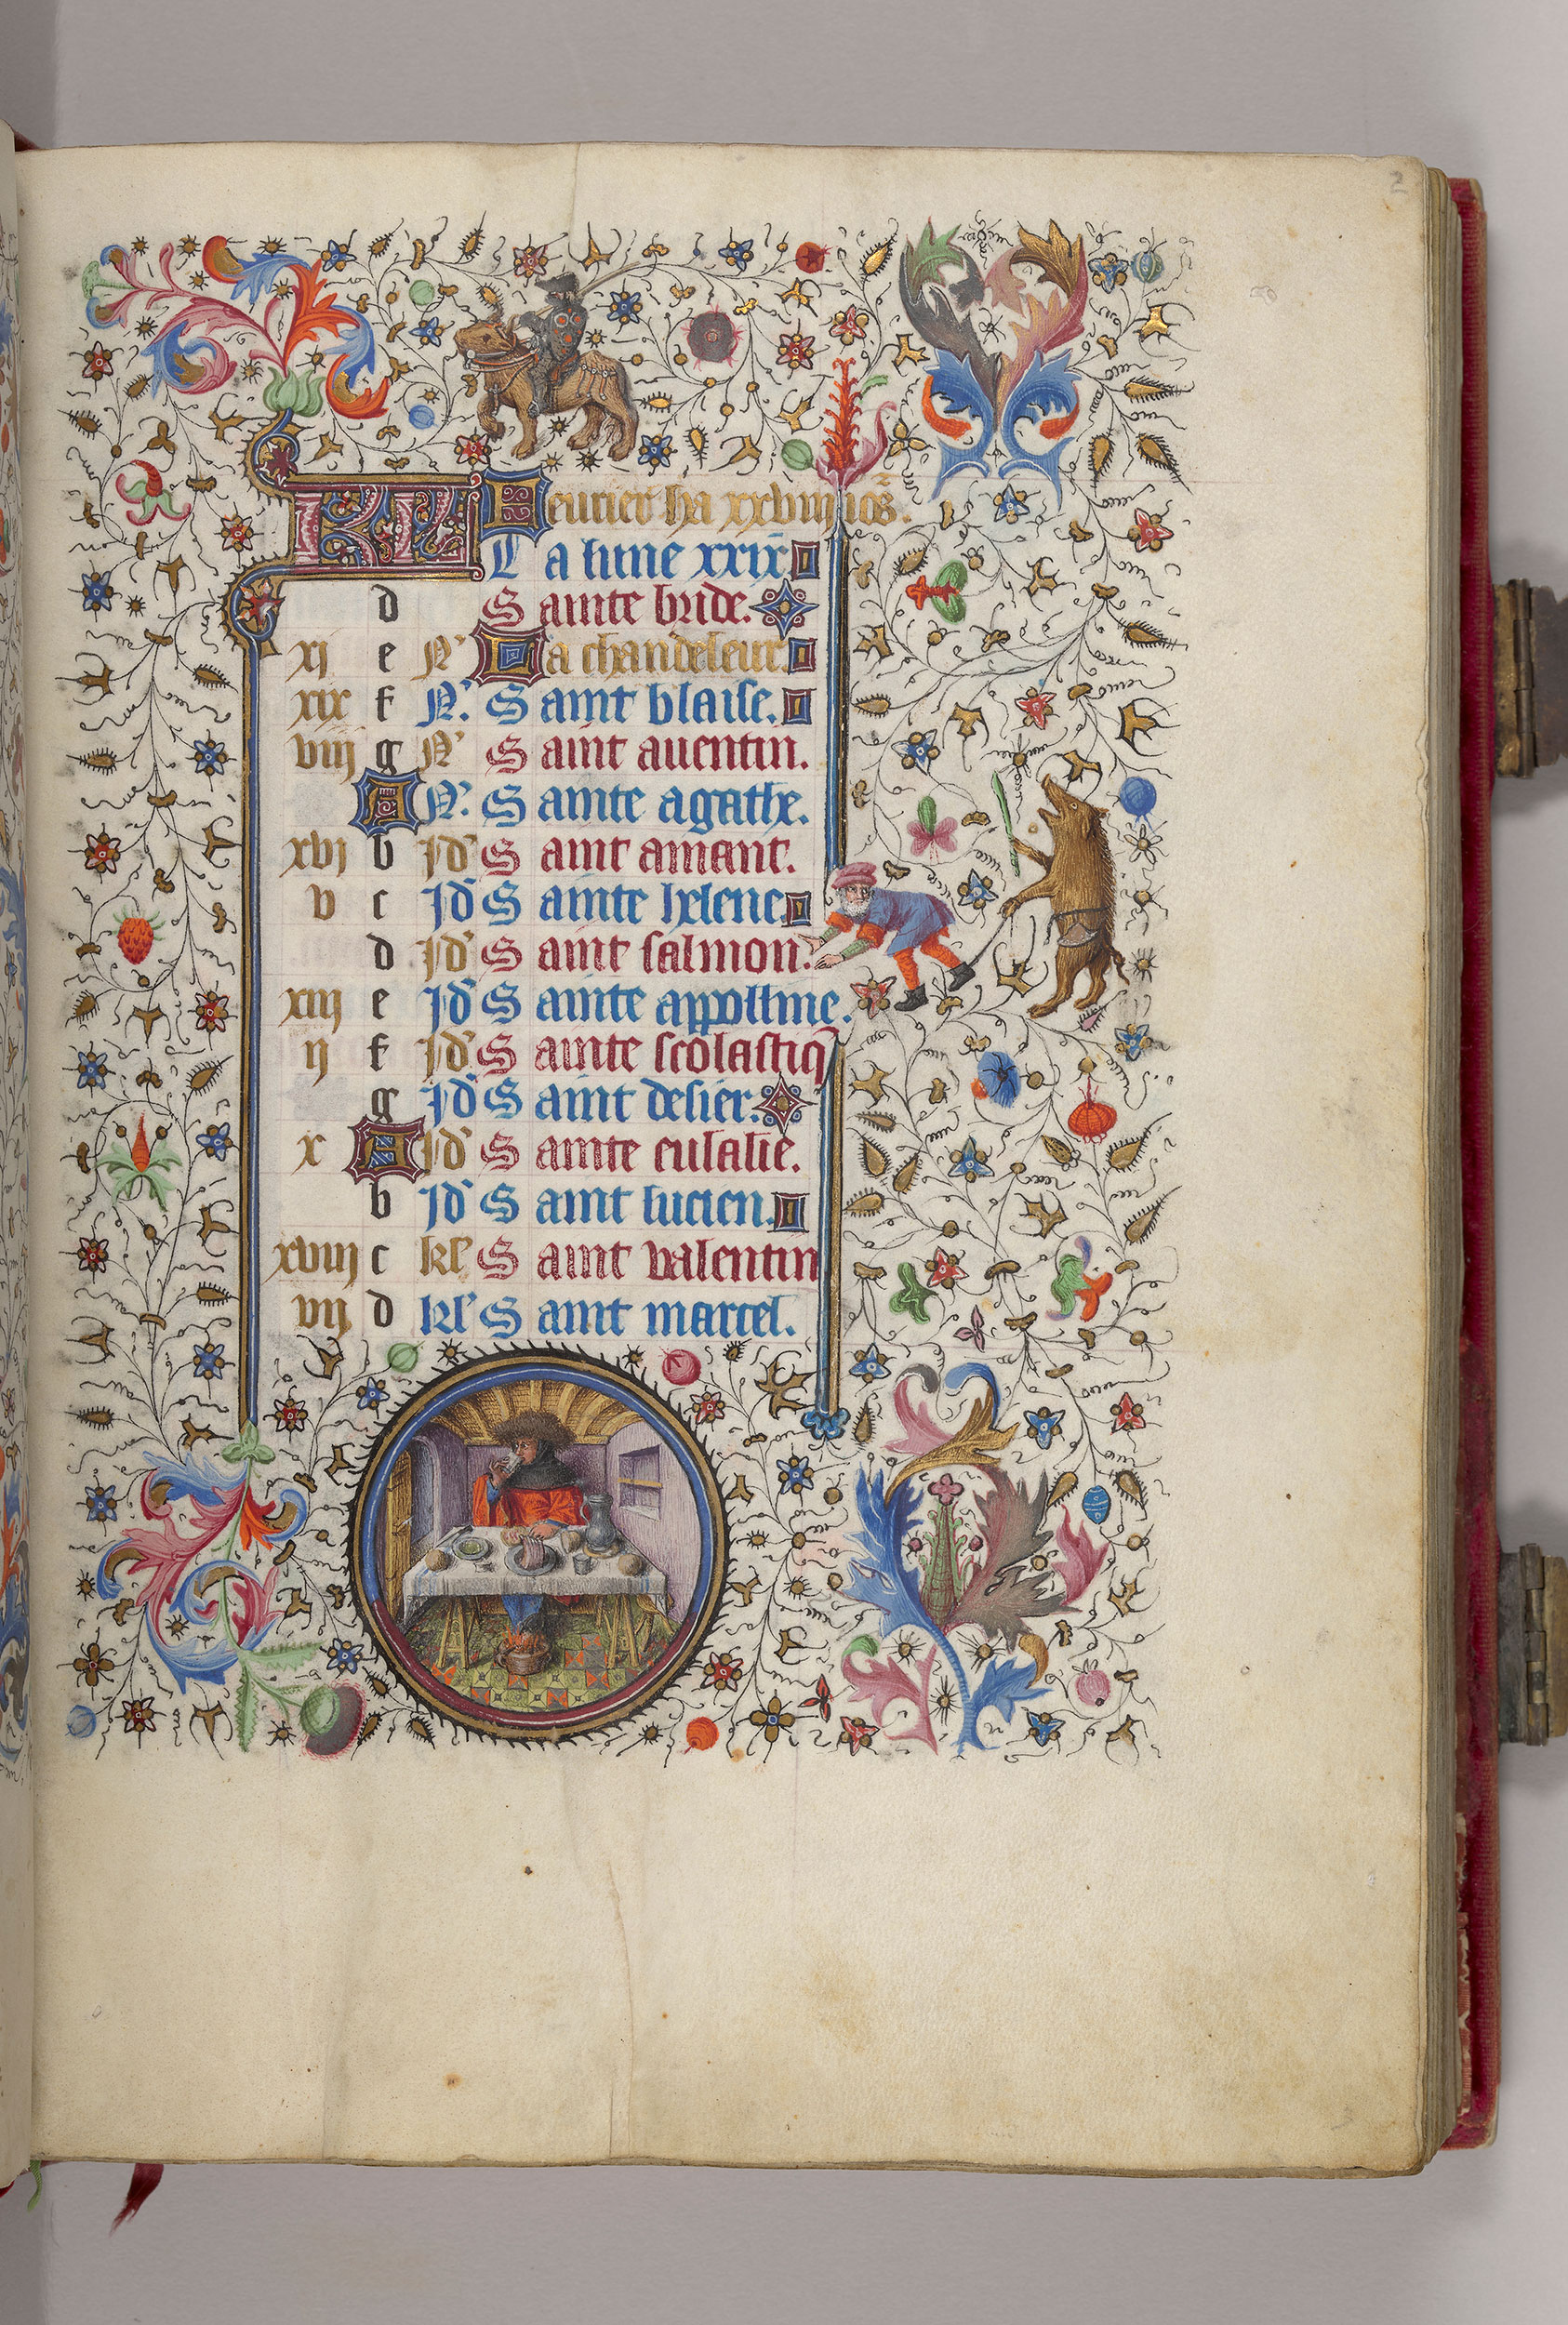 2
KL Feurier ha xxviii iours.
La lune xxix
d Sainte bride.
xi e N' La chandeleur
xix f N. Saint blaise.
viii g N' Saint auentin.
A N. Sainte agathe.
xvi b Id' Saint amant.
v c Id' Sainte helene
d Id' Saint salmon.
xiii e Id' Sainte appolline.
ii f Id' Sainte scolastiq̄
g Id' Saint desier.
x A Id' Sainte eulalie.
b Id' Saint lucien.
xviii c kl' Saint valentin
vii d kl' Saint marcel.